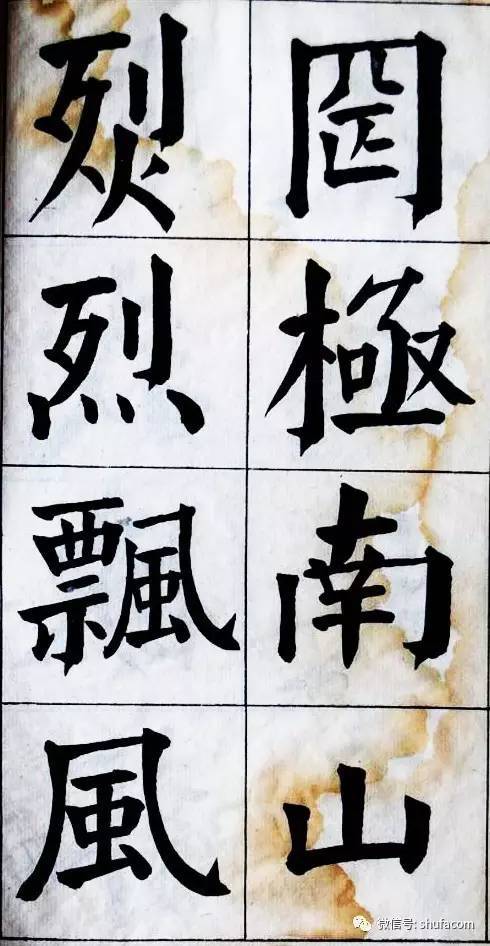 罔極南山
烈烈飄風
微信号: shufacom